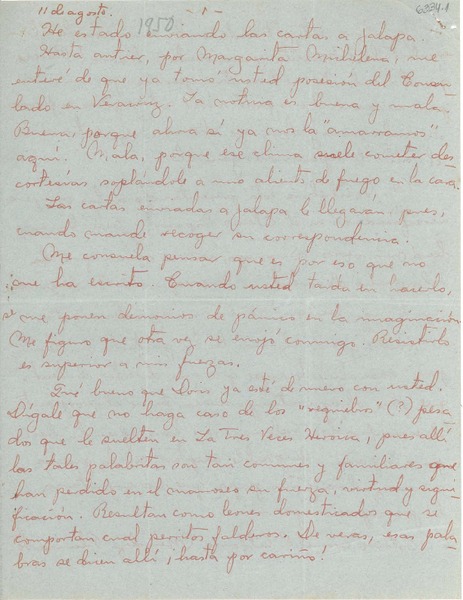 11 de agosto. 1950. - 1 - 6234-1
He estado enviando las cartas a Jalapa.
Hasta antier, por Margarita Michelena, me
enteré de que ya tomó usted posesión del Consu-
lado en Veracruz. La noticia es buena y mala.
Buena porque ahora sí ya nos la "amarramos"
aquí. Mala, porque ese clima suele cometer des-
cortesías soplándole a uno aliento de fuego en la cara.
Las cartas enviadas a Jalapa le llegarán pues,
cuando mande recoger su correspondencia.
Me consuela pensar que es por eso que no
me ha escrito. Cuando usted tarda en hacerlo,
se me ponen demonios de pánico en la imaginación.
Me figuro que otra vez se enojó conmigo. Resistirlo
es superior a mis fuerzas.
Qué bueno que Doris ya esté de nuevo con usted.
Dígale que no haga caso de los "requiebros" (?) pesa-
dos que le suelten en La Tres Veces Heroica, pues allí
las tales palabritas son tan comunes y familiares que
han perdido en el manoseo su fuerza, virtud y signi-
ficación. Resultan como leones domesticados que se
comportan cual perritos falderos. De veras, esas pala-
bras se dicen allí ¡hasta por cariño!